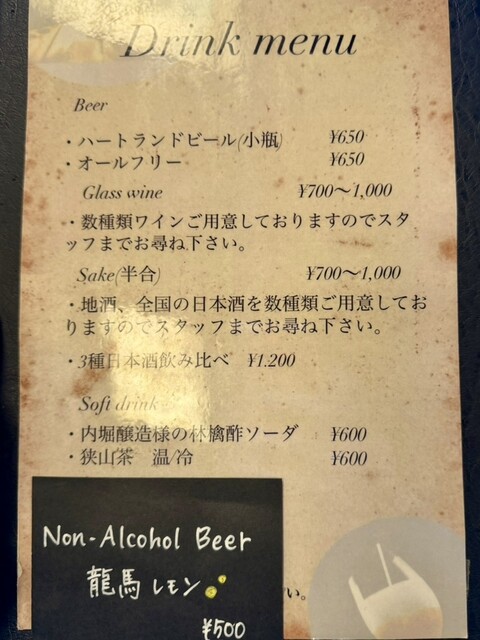 Drink menu
Beer
・ハートランドビール(小瓶) ¥650
・オールフリー ¥650
Glass wine ¥700～1,000
・数種類ワインご用意しておりますのでスタ
ッフまでお尋ね下さい。
Sake(半合) ¥700～1,000
・地酒、全国の日本酒を数種類ご用意してお
りますのでスタッフまでお尋ね下さい。
・3種日本酒飲み比べ ¥1.200
Soft drink
・内堀醸造様の林檎酢ソーダ ¥600
・狭山茶 温/冷 ¥600
Non-Alcohol Beer
龍馬レモン
¥500
い。